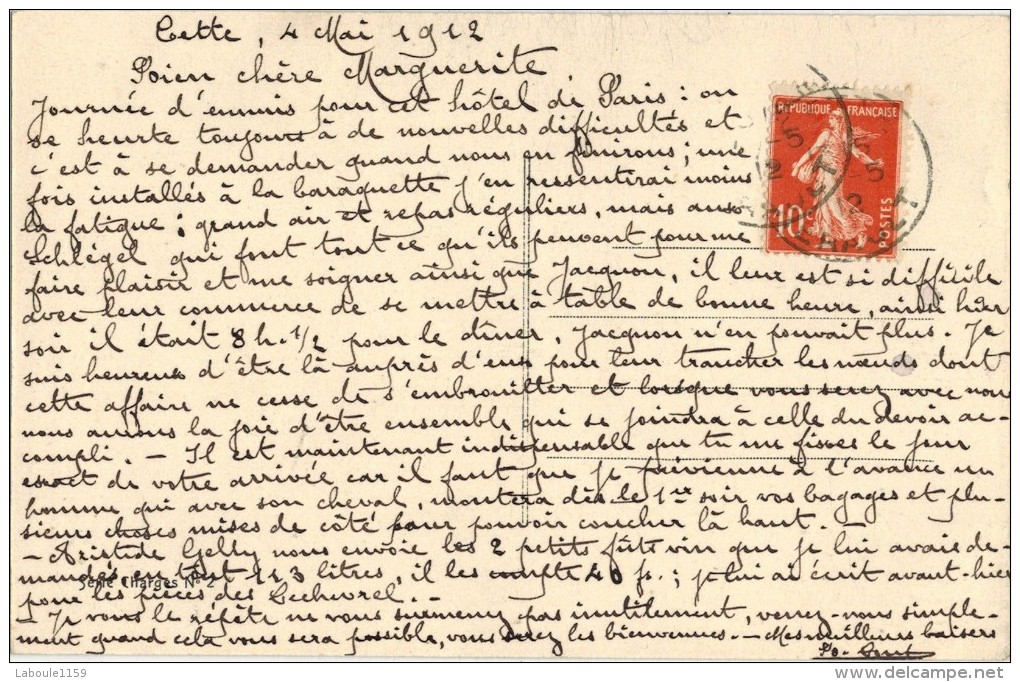 Cette, 4 Mai 1912
Bien chère Marguerite
Journée d'ennuis pour cet hôtel de Paris : on
se heurte toujours à de nouvelles difficultés et
c'est à se demander quand nous en finirons ; une
fois installés à la baraquette j'en ressentirai moins
la fatigue ; grand air et repas réguliers, mais aux
Schlégel qui font tout ce qu'ils peuvent pour me
faire plaisir et me soigner ainsi que Jacquou, il leur est si difficile
avec leur commerce de se mettre à table de bonne heure, ainsi hier
soir il était 8 h. 1/2 pour le dîner, Jacquou n'en pouvait plus. Je
suis heureux d'être là auprès d'eux pour leur trancher les nœuds dont
cette affaire ne cesse de s'embrouiller et lorsque vous serez avec nous
nous aurons la joie d'être ensemble qui se joindra à celle du devoir ac-
compli. - Il est maintenant indispensable que tu me fixes le jour
exact de votre arrivée car il faut que je prévienne à l'avance un
homme qui avec son cheval, montera dès le 1er soir vos bagages et plu-
sieurs choses mises de côté pour pouvoir coucher là haut. -
- Aristide Gelly nous envoie les 2 petits fûts vin que je lui avais de-
mandés en tout 113 litres, il les compte 40 fr. ; je lui ai écrit avant-hier
pour les pièces des Lecheurel. -
- Je vous le répète ne vous surmenez pas inutilement, venez-nous simple-
ment quand cela vous sera possible, vous serez les bienvenues. - Mes meilleurs baisers
RÉPUBLIQUE FRANÇAISE
10c
POSTES
Série Charges N° 2
Laboule1159
© www.delcampe.net